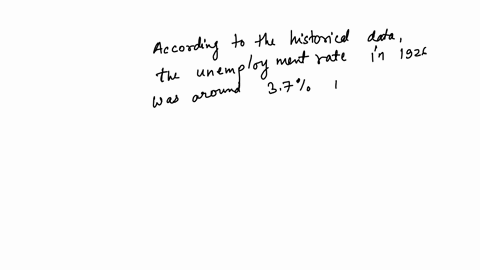 According to the historical data,
the unemployment rate in 1926
was around 3.7% |